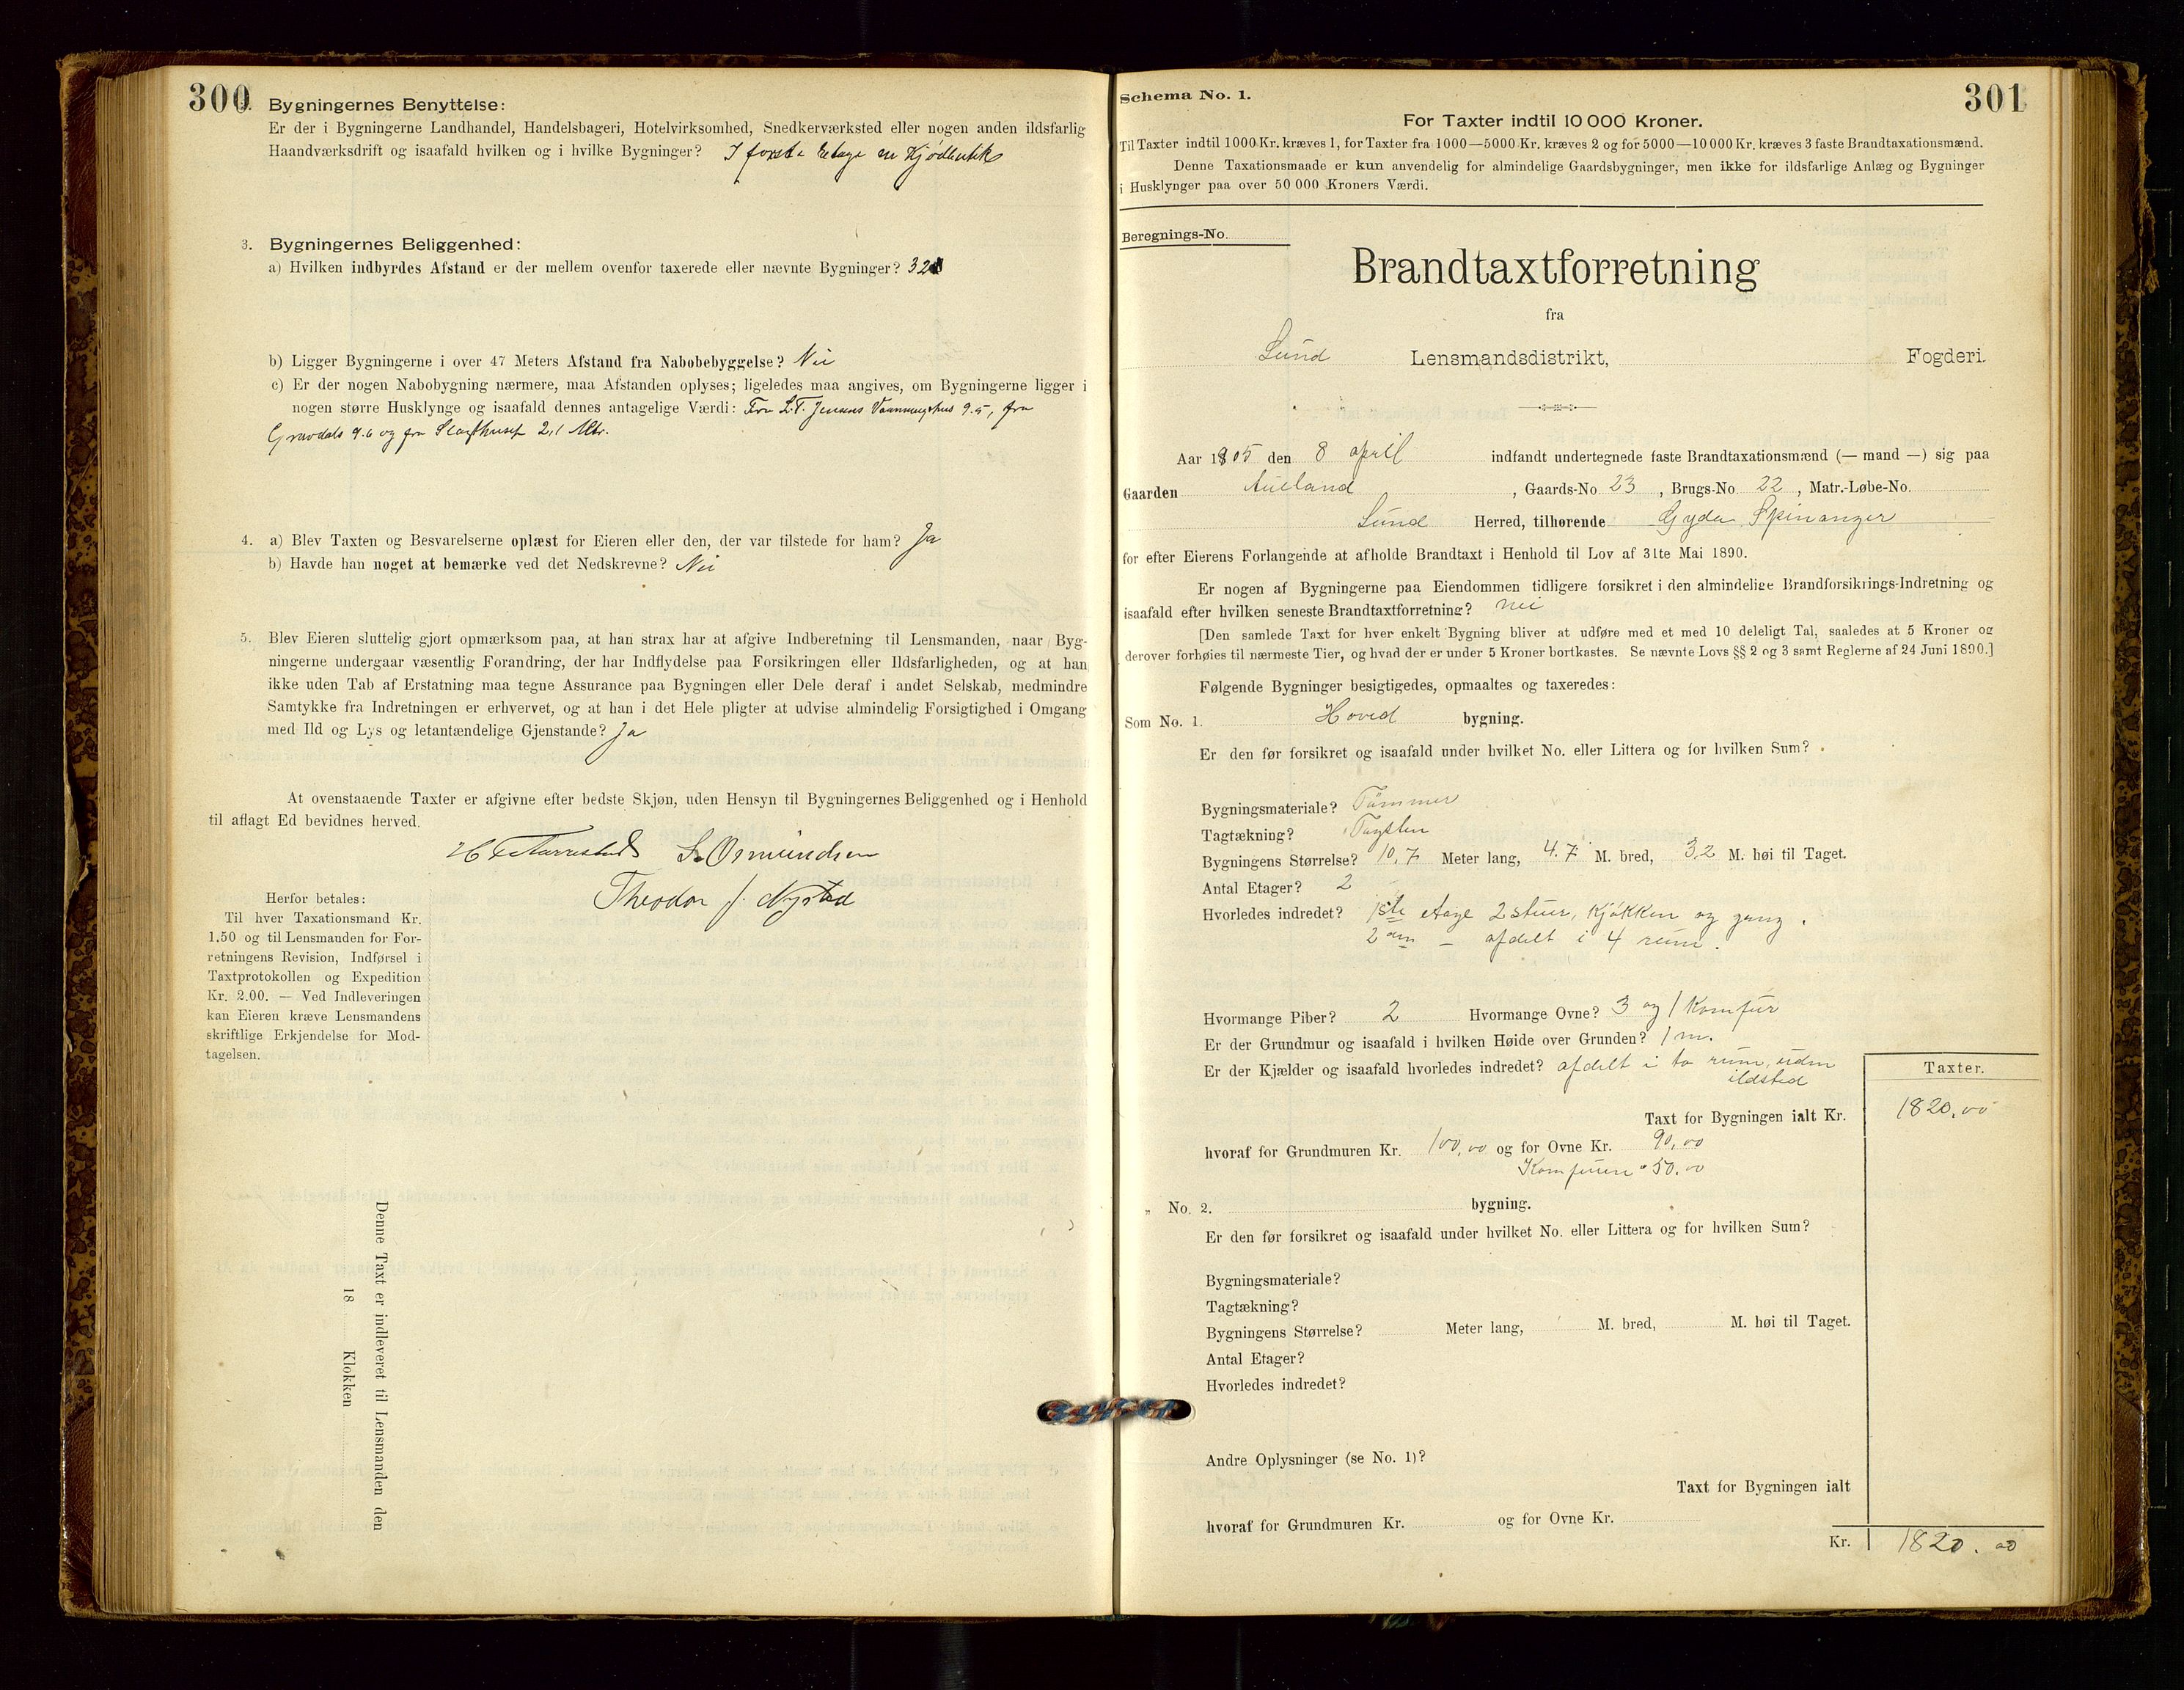 300
2. Bygningernes Benyttelse:
Er der i Bygningerne Landhandel, Handelsbageri, Hotelvirksomhed, Snedkerværksted eller nogen anden ildsfarlig
Haandværksdrift og isaafald hvilken og i hvilke Bygninger? I første Etage en Kjødbutik
3. Bygningernes Beliggenhed:
a) Hvilken indbyrdes Afstand er der mellem ovenfor taxerede eller nævnte Bygninger?
b) Ligger Bygningerne i over 47 Meters Afstand fra Nabobebyggelse? Nei
c) Er der nogen Nabobygning nærmere, maa Afstanden oplyses; ligeledes maa angives, om Bygningerne ligger i
nogen større Husklynge og isaafald dennes antagelige Værdi: Fra L.T. Jensens Vaaningshus 9.5, fra
Gravdals 9.6 og fra Slagthuset 2,1 Mtr.
4. a) Blev Taxten og Besvarelserne oplæst for Eieren eller den, der var tilstede for ham? Ja
b) Havde han noget at bemærke ved det Nedskrevne? Nei
5. Blev Eieren sluttelig gjort opmærksom paa, at han strax har at afgive Indberetning til Lensmanden, naar Byg-
ningerne undergaar væsentlig Forandring, der har Indflydelse paa Forsikringen eller Ildsfarligheden, og at han
ikke uden Tab af Erstatning maa tegne Assurance paa Bygningen eller Dele deraf i andet Selskab, medmindre
Samtykke fra Indretningen er erhvervet, og at han i det Hele pligter at udvise almindelig Forsigtighed i Omgang
med Ild og Lys og letantændelige Gjenstande? Ja
At ovenstaaende Taxter er afgivne efter bedste Skjøn, uden Hensyn til Bygningernes Beliggenhed og i Henhold
til aflagt Ed bevidnes herved.
S. Osmundsen
Theodor J. Nysted
Herfor betales:
Til hver Taxationsmand Kr.
1.50 og til Lensmanden for For-
retningens Revision, Indførsel i
Taxtprotokollen og Expedition
Kr. 2.00. — Ved Indleveringen
kan Eieren kræve Lensmandens
skriftlige Erkjendelse for Mod-
tagelsen.
Denne Taxt er indleveret til Lensmanden den
18 Klokken
Schema No. 1.
301
For Taxter indtil 10 000 Kroner.
Til Taxter indtil 1000 Kr. kræves 1, for Taxter fra 1000—5000 Kr. kræves 2 og for 5000—10 000 Kr. kræves 3 faste Brandtaxationsmænd.
Denne Taxationsmaade er kun anvendelig for almindelige Gaardsbygninger, men ikke for ildsfarlige Anlæg og Bygninger
i Husklynger paa over 50 000 Kroners Værdi.
Beregnings-No.
Brandtaxtforretning
fra
Sund Lensmandsdistrikt, Fogderi.
Aar 1905 den 8 april indfandt undertegnede faste Brandtaxationsmænd (— mand —) sig paa
Gaarden Aueland, Gaards-No. 23, Brugs-No. 22, Matr.-Løbe-No.
Sund Herred, tilhørende Gyda Spinanger
for efter Eierens Forlangende at afholde Brandtaxt i Henhold til Lov af 31te Mai 1890.
Er nogen af Bygningerne paa Eiendommen tidligere forsikret i den almindelige Brandforsikrings-Indretning og
isaafald efter hvilken seneste Brandtaxtforretning? nei
[Den samlede Taxt for hver enkelt Bygning bliver at udføre med et med 10 deleligt Tal, saaledes at 5 Kroner og
derover forhøies til nærmeste Tier, og hvad der er under 5 Kroner bortkastes. Se nævnte Lovs §§ 2 og 3 samt Reglerne af 24 Juni 1890.]
Følgende Bygninger besigtigedes, opmaaltes og taxeredes:
Som No. 1. Hoved bygning.
Er den før forsikret og isaafald under hvilket No. eller Littera og for hvilken Sum?
Bygningsmateriale? Tømmer
Tagtækning? Tagsten
Bygningens Størrelse? 10,7 Meter lang, 4.7 M. bred, 3,2 M. høi til Taget.
Antal Etager? 2
Hvorledes indredet? 1ste etage 2 stuer, Kjøkken og gang.
2den — afdelt i 4 rum.
Hvormange Piber? 2 Hvormange Ovne? 3 og 1 Komfur
Er der Grundmur og isaafald i hvilken Høide over Grunden? 1 m.
Er der Kjælder og isaafald hvorledes indredet? afdelt i to rum, uden
ildsted
Taxter.
Taxt for Bygningen ialt Kr. 1820.00
hvoraf for Grundmuren Kr. 100,00 og for Ovne Kr. 90,00
Komfuren " 50.00
„ No. 2. bygning.
Er den før forsikret og isaafald under hvilket No. eller Littera og for hvilken Sum?
Bygningsmateriale?
Tagtækning?
Bygningens Størrelse? Meter lang, M. bred, M. høi til Taget.
Antal Etager?
Hvorledes indredet?
Andre Oplysninger (se No. 1)?
Taxt for Bygningen ialt
hvoraf for Grundmuren Kr. og for Ovne Kr.
Kr. 1820.00